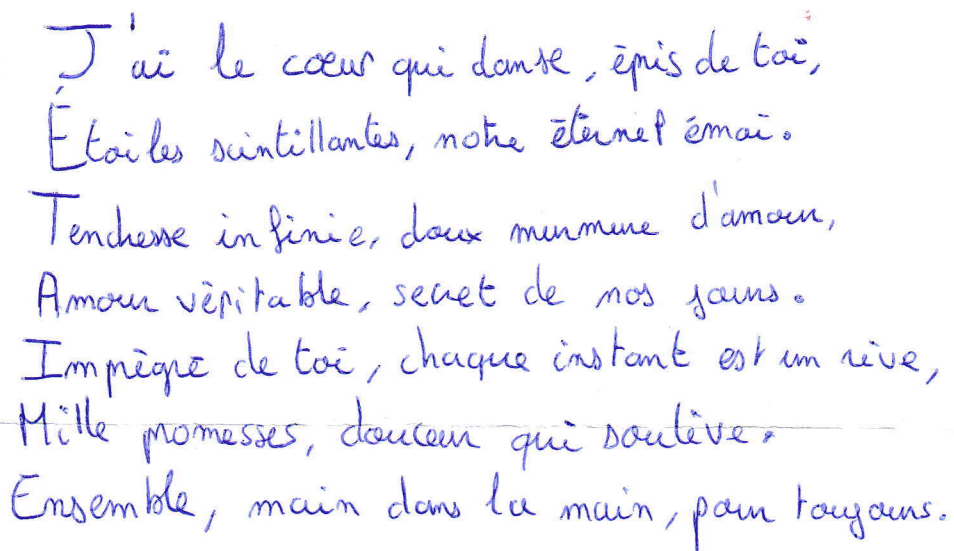 J'ai le cœur qui danse, épris de toi,
Étoiles scintillantes, notre éternel émoi.
Tendresse infinie, doux murmure d'amour,
Amour véritable, secret de nos jours.
Imprégné de toi, chaque instant est un rêve,
Mille promesses, douceur qui soulève.
Ensemble, main dans la main, pour toujours.